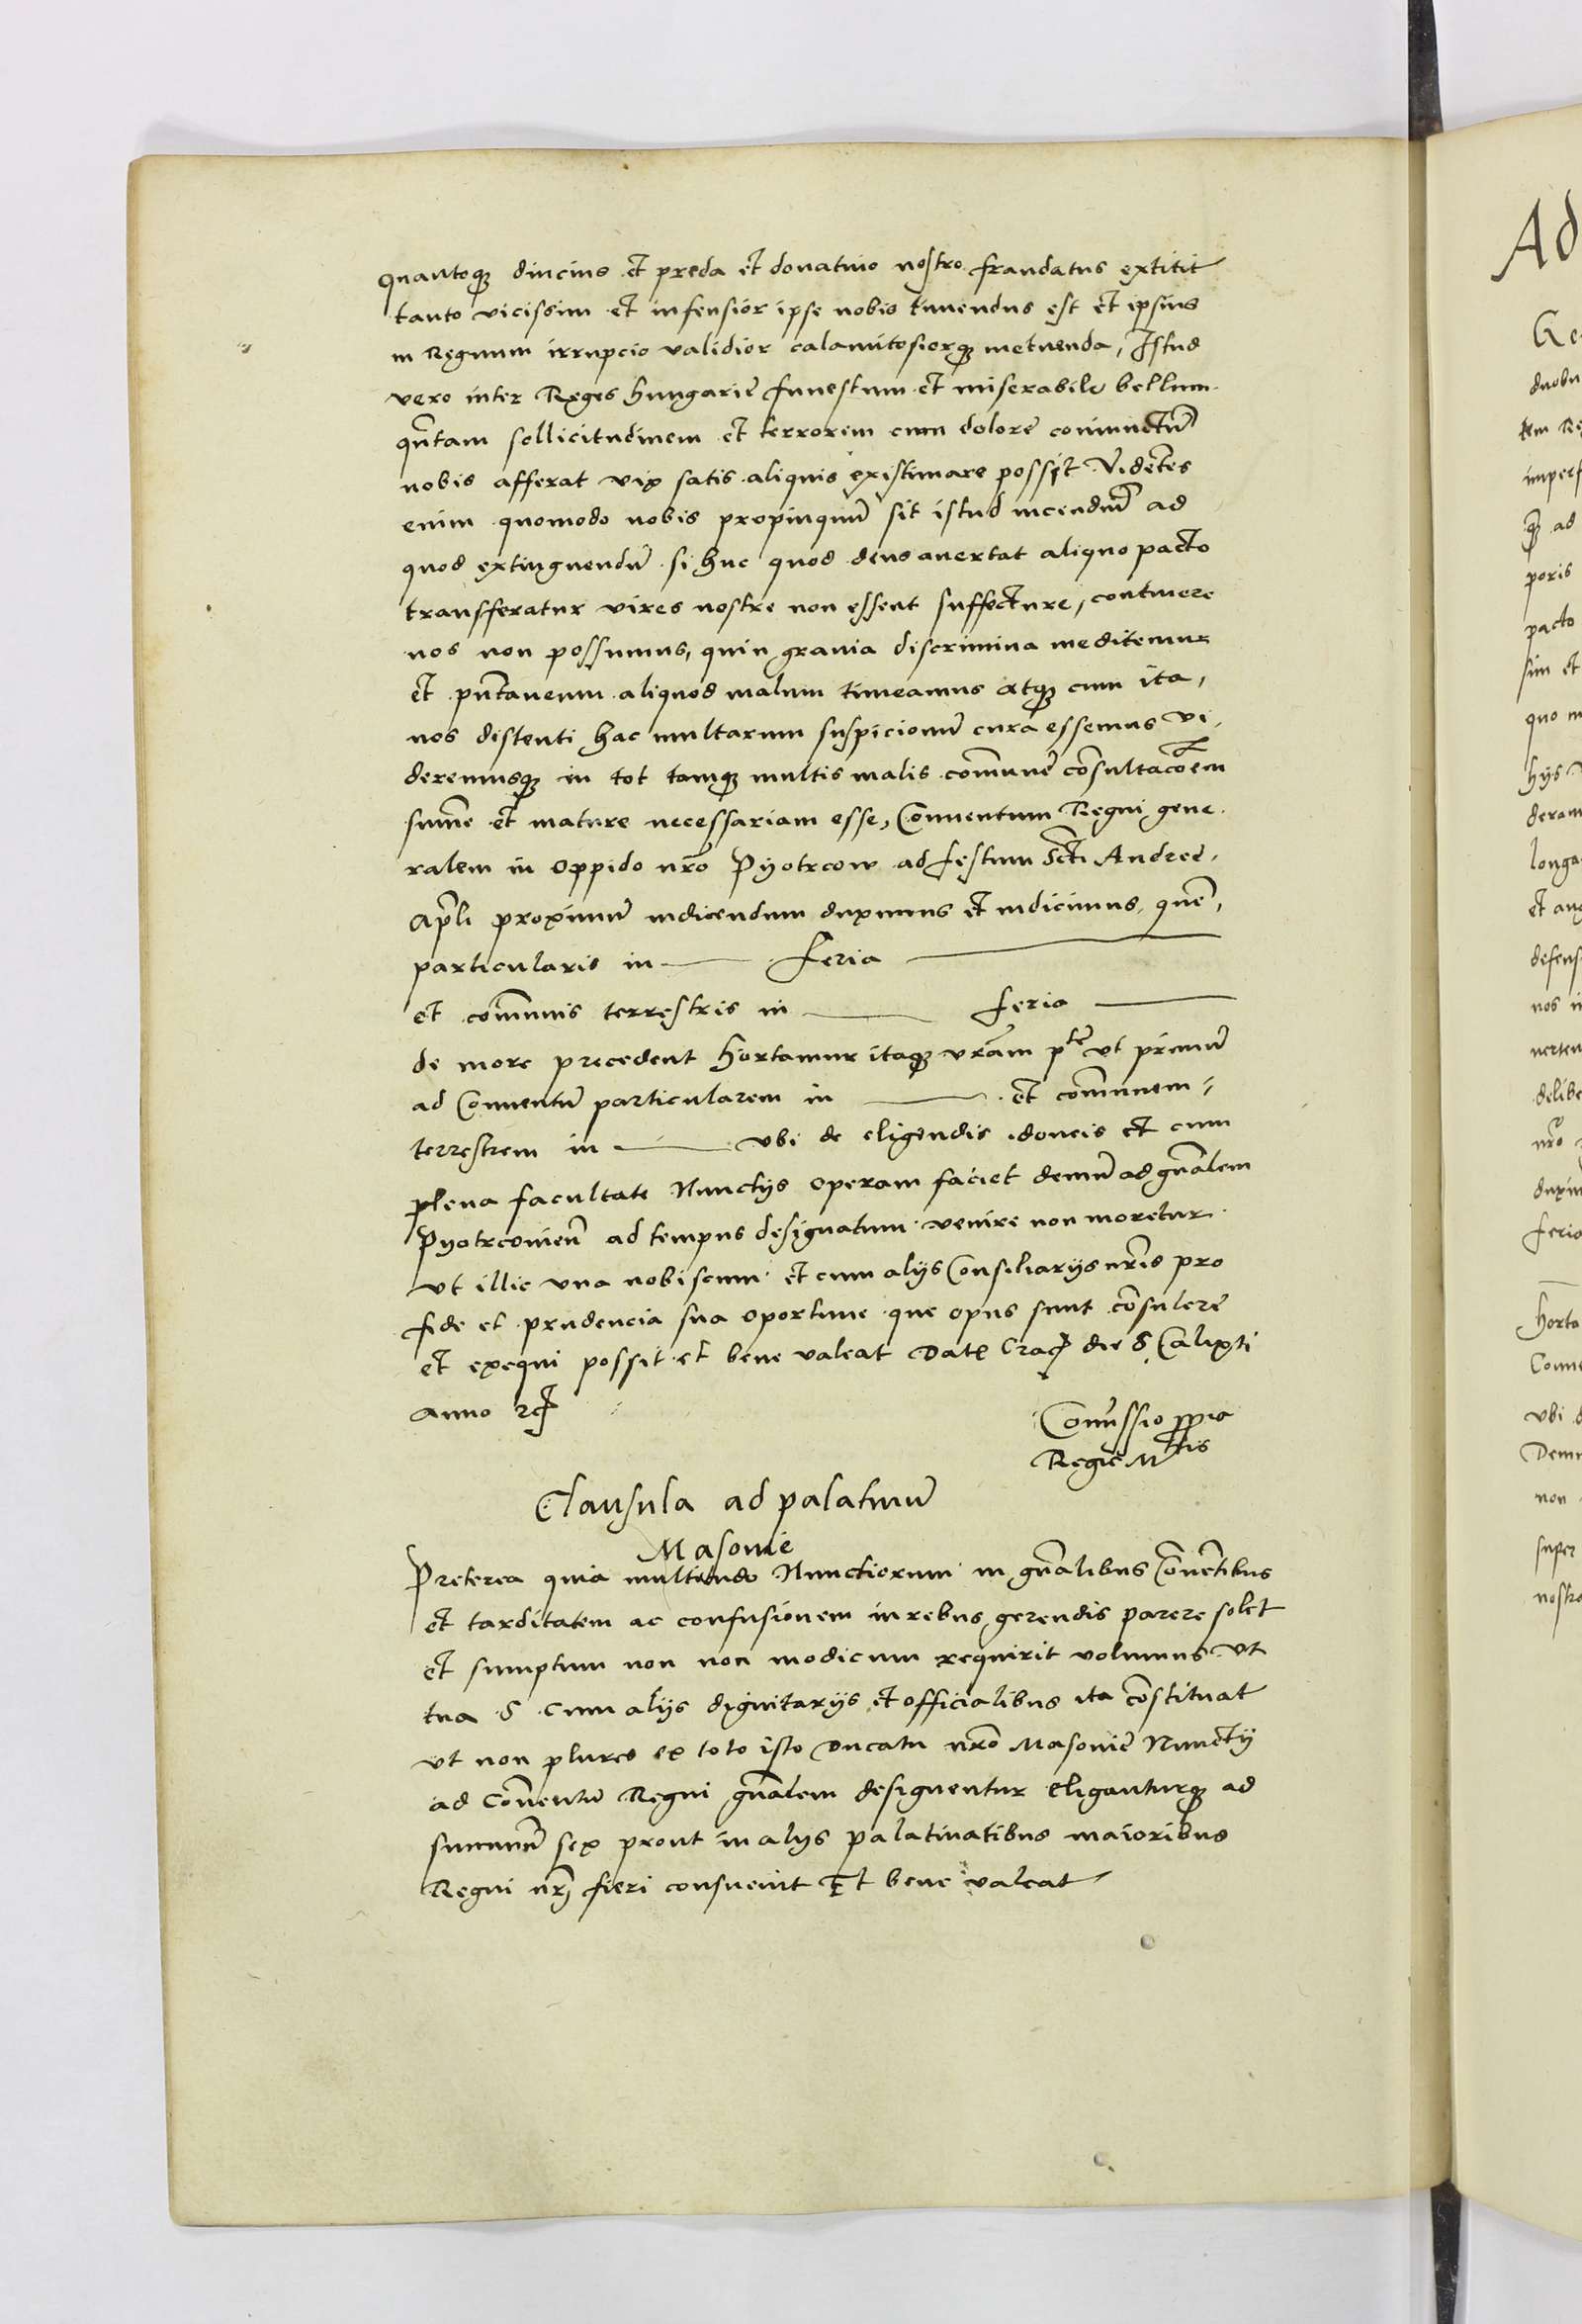 quantoq₃ diucius et preda et donatiuo nostro fraudatus extitit
tanto vicissim et infensior ipse nobis timendus est et ipsius
in Regnum irrupcio validior calamitosiorq₃ metuenda, Istud
vero inter Reges Hungarie funestum et miserabile bellum
qn̄tam sollicitudinem et terrorem cum dolore coniunctū
nobis afferat vix satis aliquis existimare possit Videntes
enim quomodo nobis propinquū sit istud incendiū ad
quod extinguendū si huc quod deus auertat aliquo pacto
transfferatur vires nostre non essent suffecture, continere
nos non possumus, quin grauia discrimina meditemur
et pn̄taneum aliquod malum timeamus atq₃ cum ita,
nos distenti hac multarum suspicionū cura essemus vi,
deremusq₃ in tot tamq₃ multis malis com̄unē cōsultacōem
sum̄e et mature necessariam esse, Conuentum Regni gene
ralem in oppido nr̄o Pyotrcow ad festum Scti Andree,
Apl̄i proximū indicendum duximus et indicimus, quē,
particularis in feria
et com̄unis terrestris in feria
de more precedent Hortamur itaq₃ vrām pte vt primū
ad Conuentū particularem in et com̄unem
terrestrem in vbi de eligendis idoneis et cum
plena facultate Nunctijs operam faciet demū ad gn̄alem
Pyotrcouien̄ ad tempus designatum venire non moretur
vt illic vna nobiscum et cum alijs Consiliarijs nr̄is pro
fide et prudencia sua oportune que opus sunt cōsulere
et exequi possit et bene valeat Datꝭ Crac die S Calixti
Anno rc
Com̄issio ppria
Regie Mtis
Clausula ad palatinū
Masouie
Preterea quia multitudo Nunctiorum in gn̄alibus Cōuētibus
et tarditatem ac confusionem in rebus gerendis parere solet
et sumptum non non modicum requirit volumus vt
tua S cum alijs dignitarijs et officialibus ita cōstituat
vt non plures ex toto isto Ducatu nr̄o Masouie Nunctij
ad Cōuentū Regni gn̄alem designentur eliganturq₃ ad
summū sex prout in alijs palatinatibus maioribus
Regni nr̄j fieri consueuit Et bene valeat
Ad